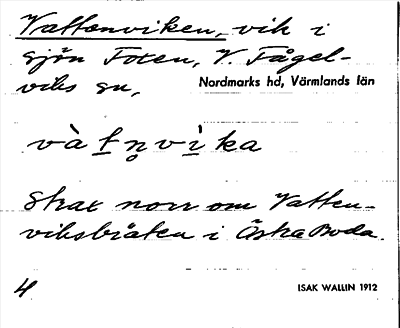 Vattenviken, vik i
sjön Foxen, V. Fågel-
viks sn,
Nordmarks hd, Värmlands län
và t n̥ v ì ka
Strax norr om Vatten-
viksbråten i Östra Boda.
4
ISAK WALLIN 1912